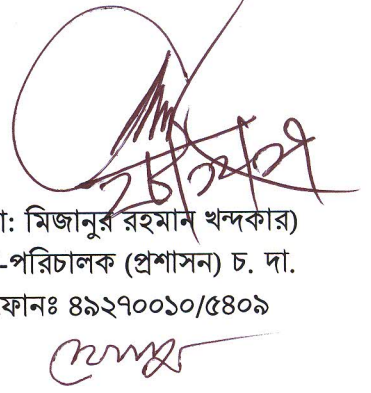 া: মিজানুর রহমান খন্দকার)
-পরিচালক (প্রশাসন) চ. দা.
ফোনঃ ৪৯২৭০০১০/৫৪০৯